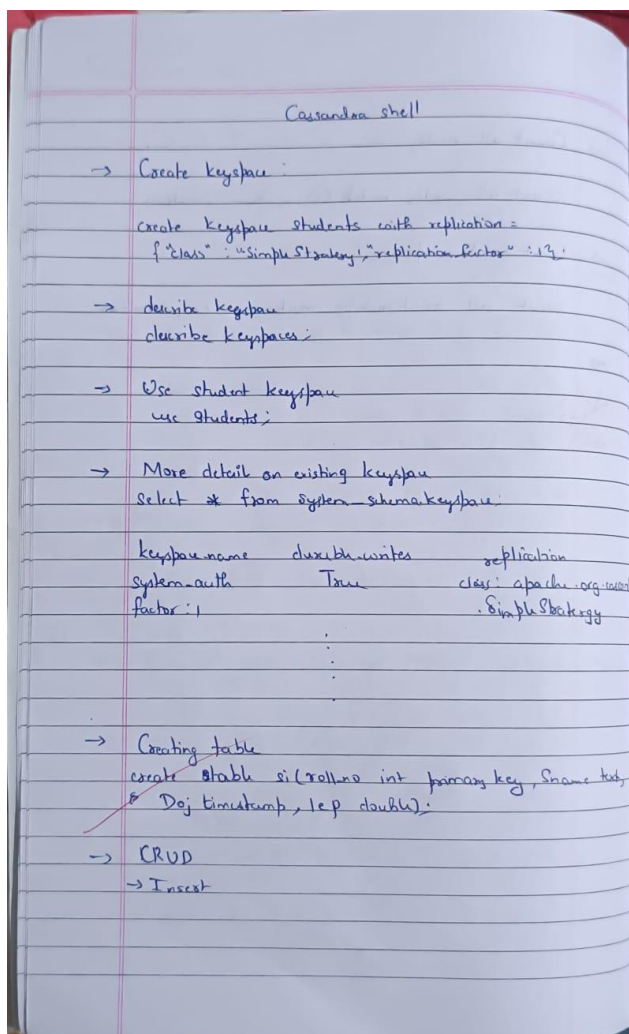 Cassandra shell
→ Create keyspace :
create keyspace students with replication =
{ "class" : "Simple Strategy", "replication_factor" : 1};
→ describe keyspace
describe keyspaces;
→ Use student keyspace
use students;
→ More detail on existing keyspace
select * from system_schema.keyspace;
keyspace_name durable_writes replication
system_auth True class: apache.org.cassan
factor: 1 .Simple Stratergy
→ Creating table
create stable si (roll_no int primary key, Sname text,
Doj timestamp, lep double);
→ CRUD
→ Insert